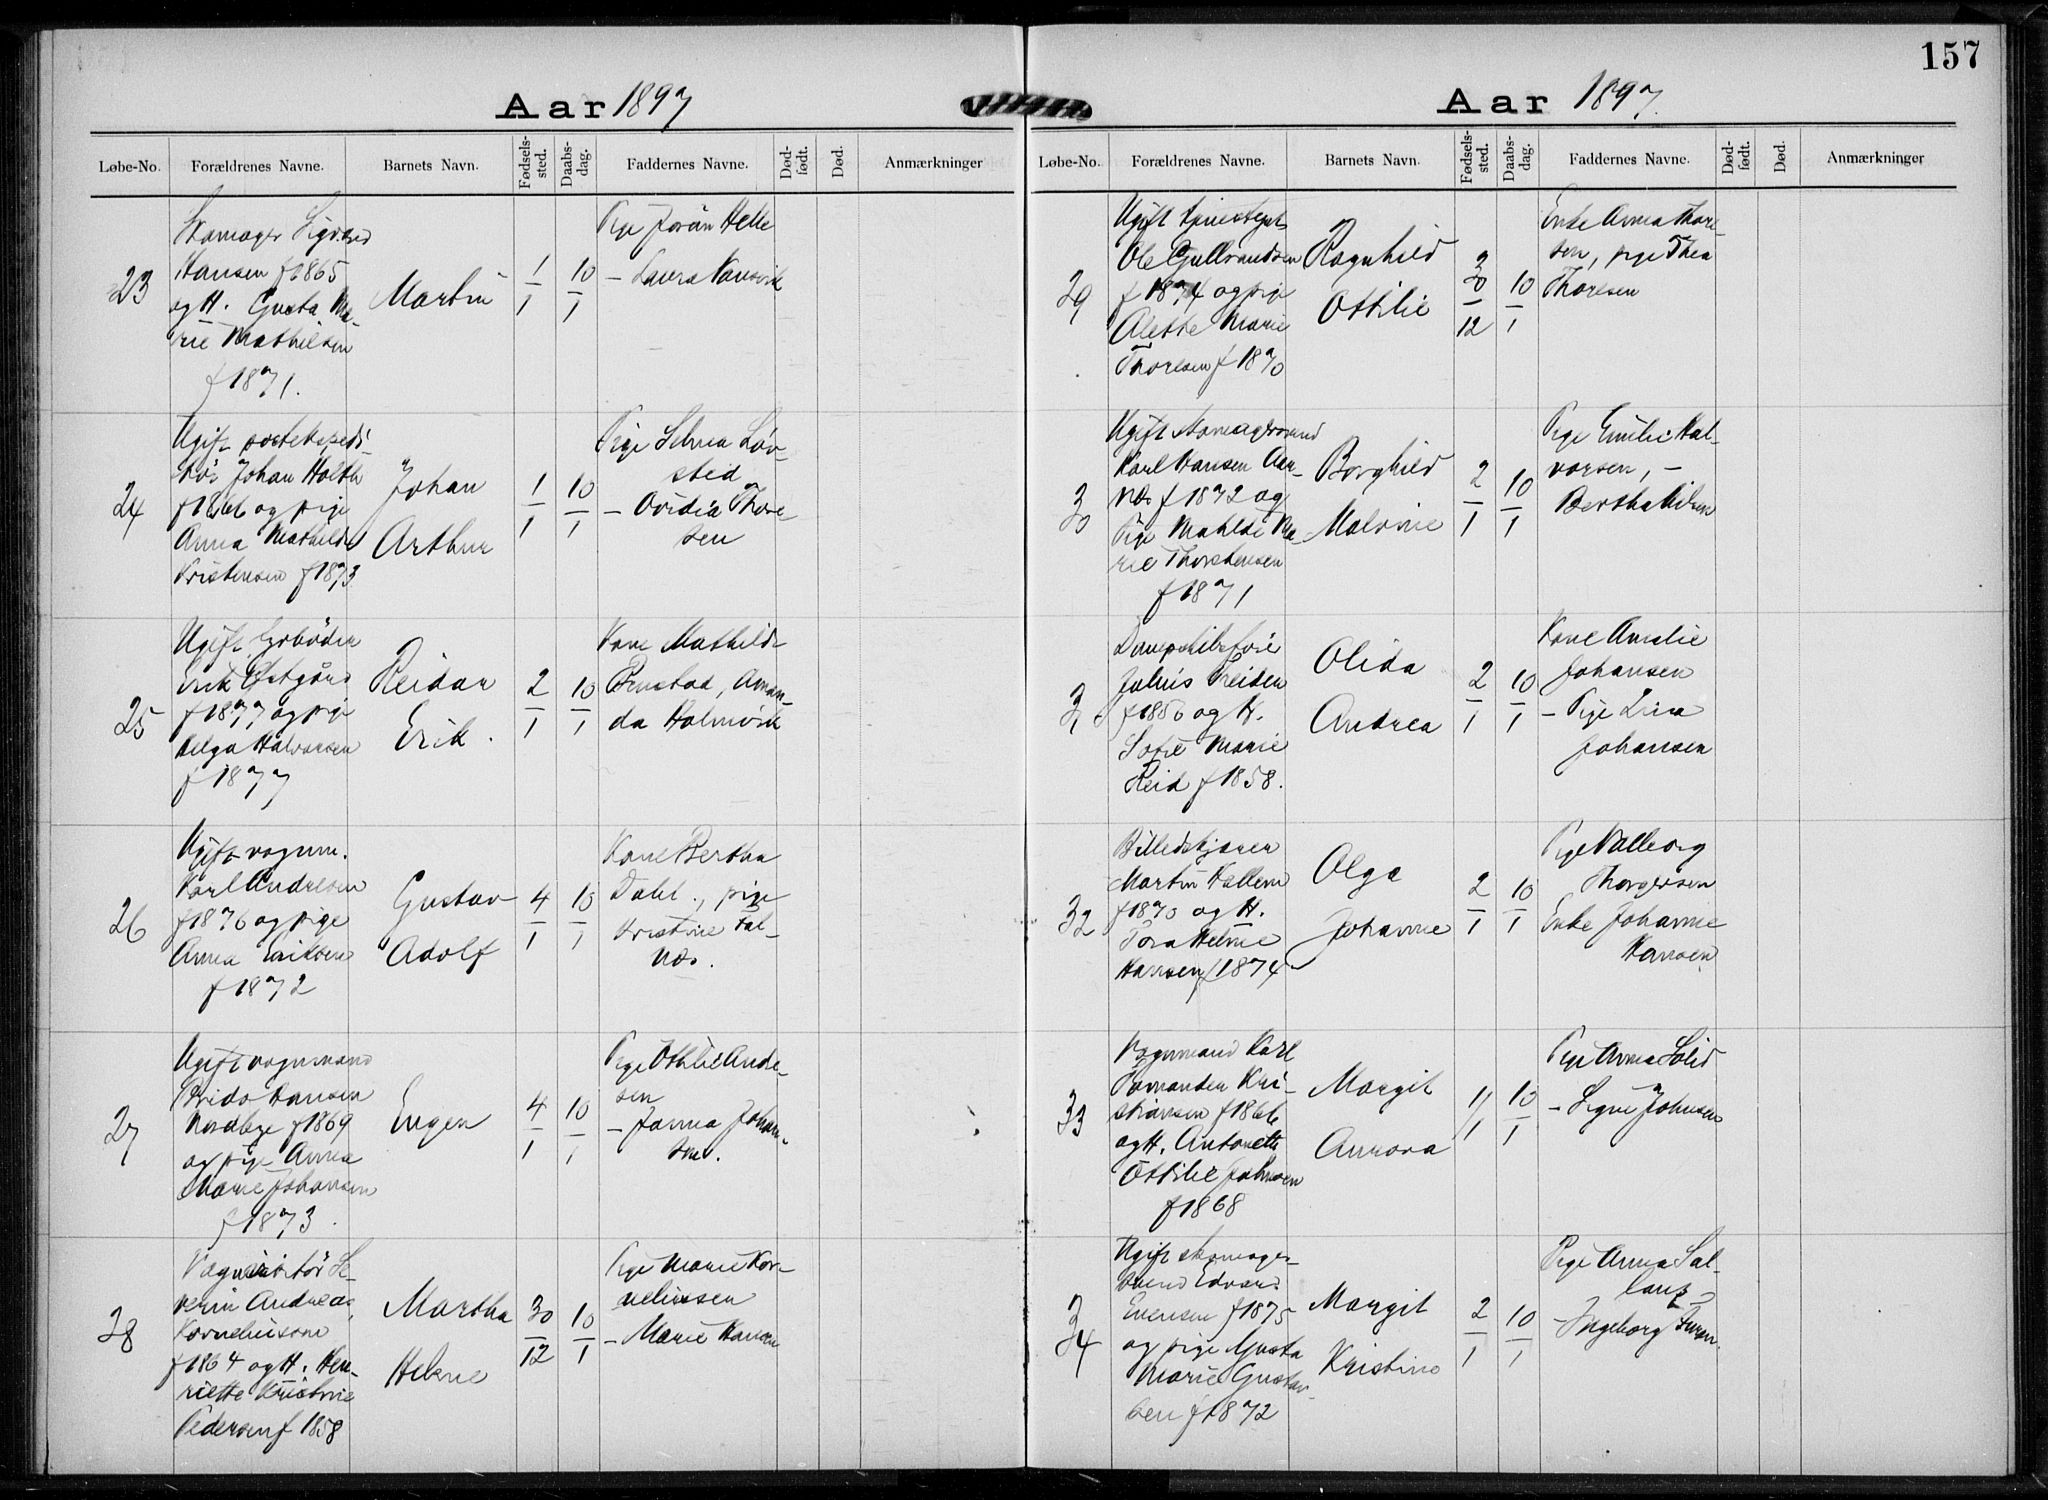 157
Aar 1897
Løbe-No. Forældrenes Navne. Barnets Navn. Fødsels-sted. Daabs-dag. Faddernes Navne. Død-født. Død. Anmærkninger
23
Skomager Sigvard
Hansen f 1865
og H. Gusta Ma-
rie Mathilsen
f 1871.
Martin
1/1
10/1
Pige Jorån Helle
- Laura
24
Ugift postekspedi-
tør Johan Holth
f 1866 og pige
Anna Mathilde
Kristensen f 1873
Johan
Arthur
1/1
10/1
Pige Selma Löv-
sted
- Ovidia Thore-
sen
25
Ugift
Erik Østgård
f 1877 og pige
Helga Halvorsen
f 1877
Reidar
Erik.
2/1
10/1
Kone Mathilde
Aman-
da Holmvik
26
Ugift vognm.
Karl Andresen
f 1876 og pige
Anna Eriksen
f 1872
Gustav
Adolf
4/1
10/1
Kone Bertha
Dahl., pige
Kristine Fal-
næs.
27
Ugift vognmand
Hansen
Nordbye f 1869
og pige Anna
Marie Johansen
f 1873.
Eugen
4/1
10/1
Pige Othilie Andre-
sen
- Janna Johan-
sen.
28
Vognvisitør Se-
verin Andreas
Korneliussen
f 1864 og H. Hen-
riette Kristine
Pedersen f 1858
Martha
Helene
30/12
10/1
Pige Marie Kor-
neliussen
- Marie Hansen
Aar 1897.
Løbe-No. Forældrenes Navne. Barnets Navn. Fødsels-sted. Daabs-dag. Faddernes Navne. Død-født. Død. Anmærkninger
29
Ugift
Ole Gulbrandsen
f 1874 og pige
Alette Marie
Thoresen f 1870
Ragnhild
Ottilie
30/12
10/1
Enke Anna Thore-
sen, pige Thea
Thoresen
30
Ugift skomagersvend
Karl Hansen Aar-
næs f 1872 og
Pige Mathilde Ma-
rie Thorstensen
f 1871
Borghild
Malvine
2/1
10/1
Pige Emilie Hal-
vorsen, -
Bertha Nilsen
31
Julius Treiden
f 1856 og H.
Sofie Marie
Reid f 1858.
Olida
Andrea
2/1
10/1
Kone Amalie
Johansen
- Pige Lina
Johansen
32
Billedskjærer
Martin Hallem
f 1870 og H.
Tora Helene
Hansen f 1874
Olga
Johanne
2/1
10/1
Pige Valborg
Thorgersen
Enke Johanne
Hansen
33
Vognmand Karl
Kri-
stiansen f 1866
og H. Antonette
Ottilie Johnsen
f 1868
Margit
Aurora
1/1
10/1
Pige Anna Solid
- Signe Johnsen
34
Ugift skomager-
svend Edvard
Evensen f 1875
og pige Gusta
Marie Gustav-
sen f 1872
Margit
Kristine
2/1
10/1
Pige Anna Sal-
- Ingeborg